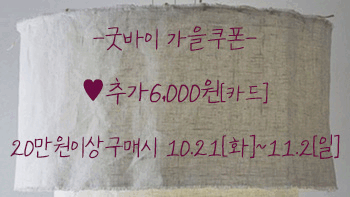 -굿바이 가을쿠폰-
♥추가6,000원[카드]
20만원이상구매시 10.21[화]~11.2[일]